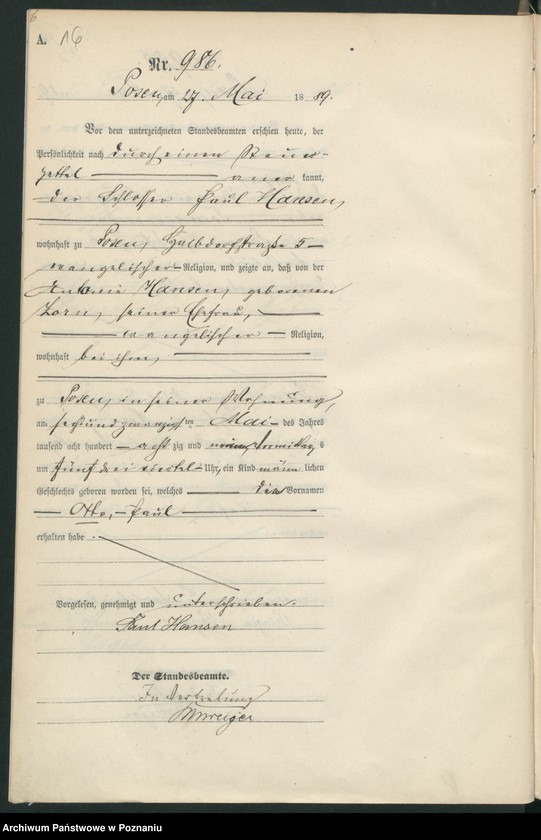 6
A. 16
Nr. 986.
Posen, am 27. Mai 1889.
Vor dem unterzeichneten Standesbeamten erschien heute, der
Persönlichkeit nach durch einen Steuer-
zettel anerkannt,
der Schlosser Paul Hansen,
wohnhaft zu Posen, Halbdorfstraße 5
evangelischer Religion, und zeigte an, daß von der
Antonie Hansen, geborenen
Zorn, seiner Ehefrau,
evangelischer Religion,
wohnhaft bei ihm,
zu Posen, in seiner Wohnung,
am sechsundzwanzigsten Mai des Jahres
tausend acht hundert achtzig und neun, Vormittags
um fünf drei viertel Uhr, ein Kind männlichen
Geschlechts geboren worden sei, welches die Vornamen
Otto, Paul
erhalten habe.
Vorgelesen, genehmigt und unterschrieben.
Paul Hansen
Der Standesbeamte.
In Vertretung
Archiwum Państwowe w Poznaniu